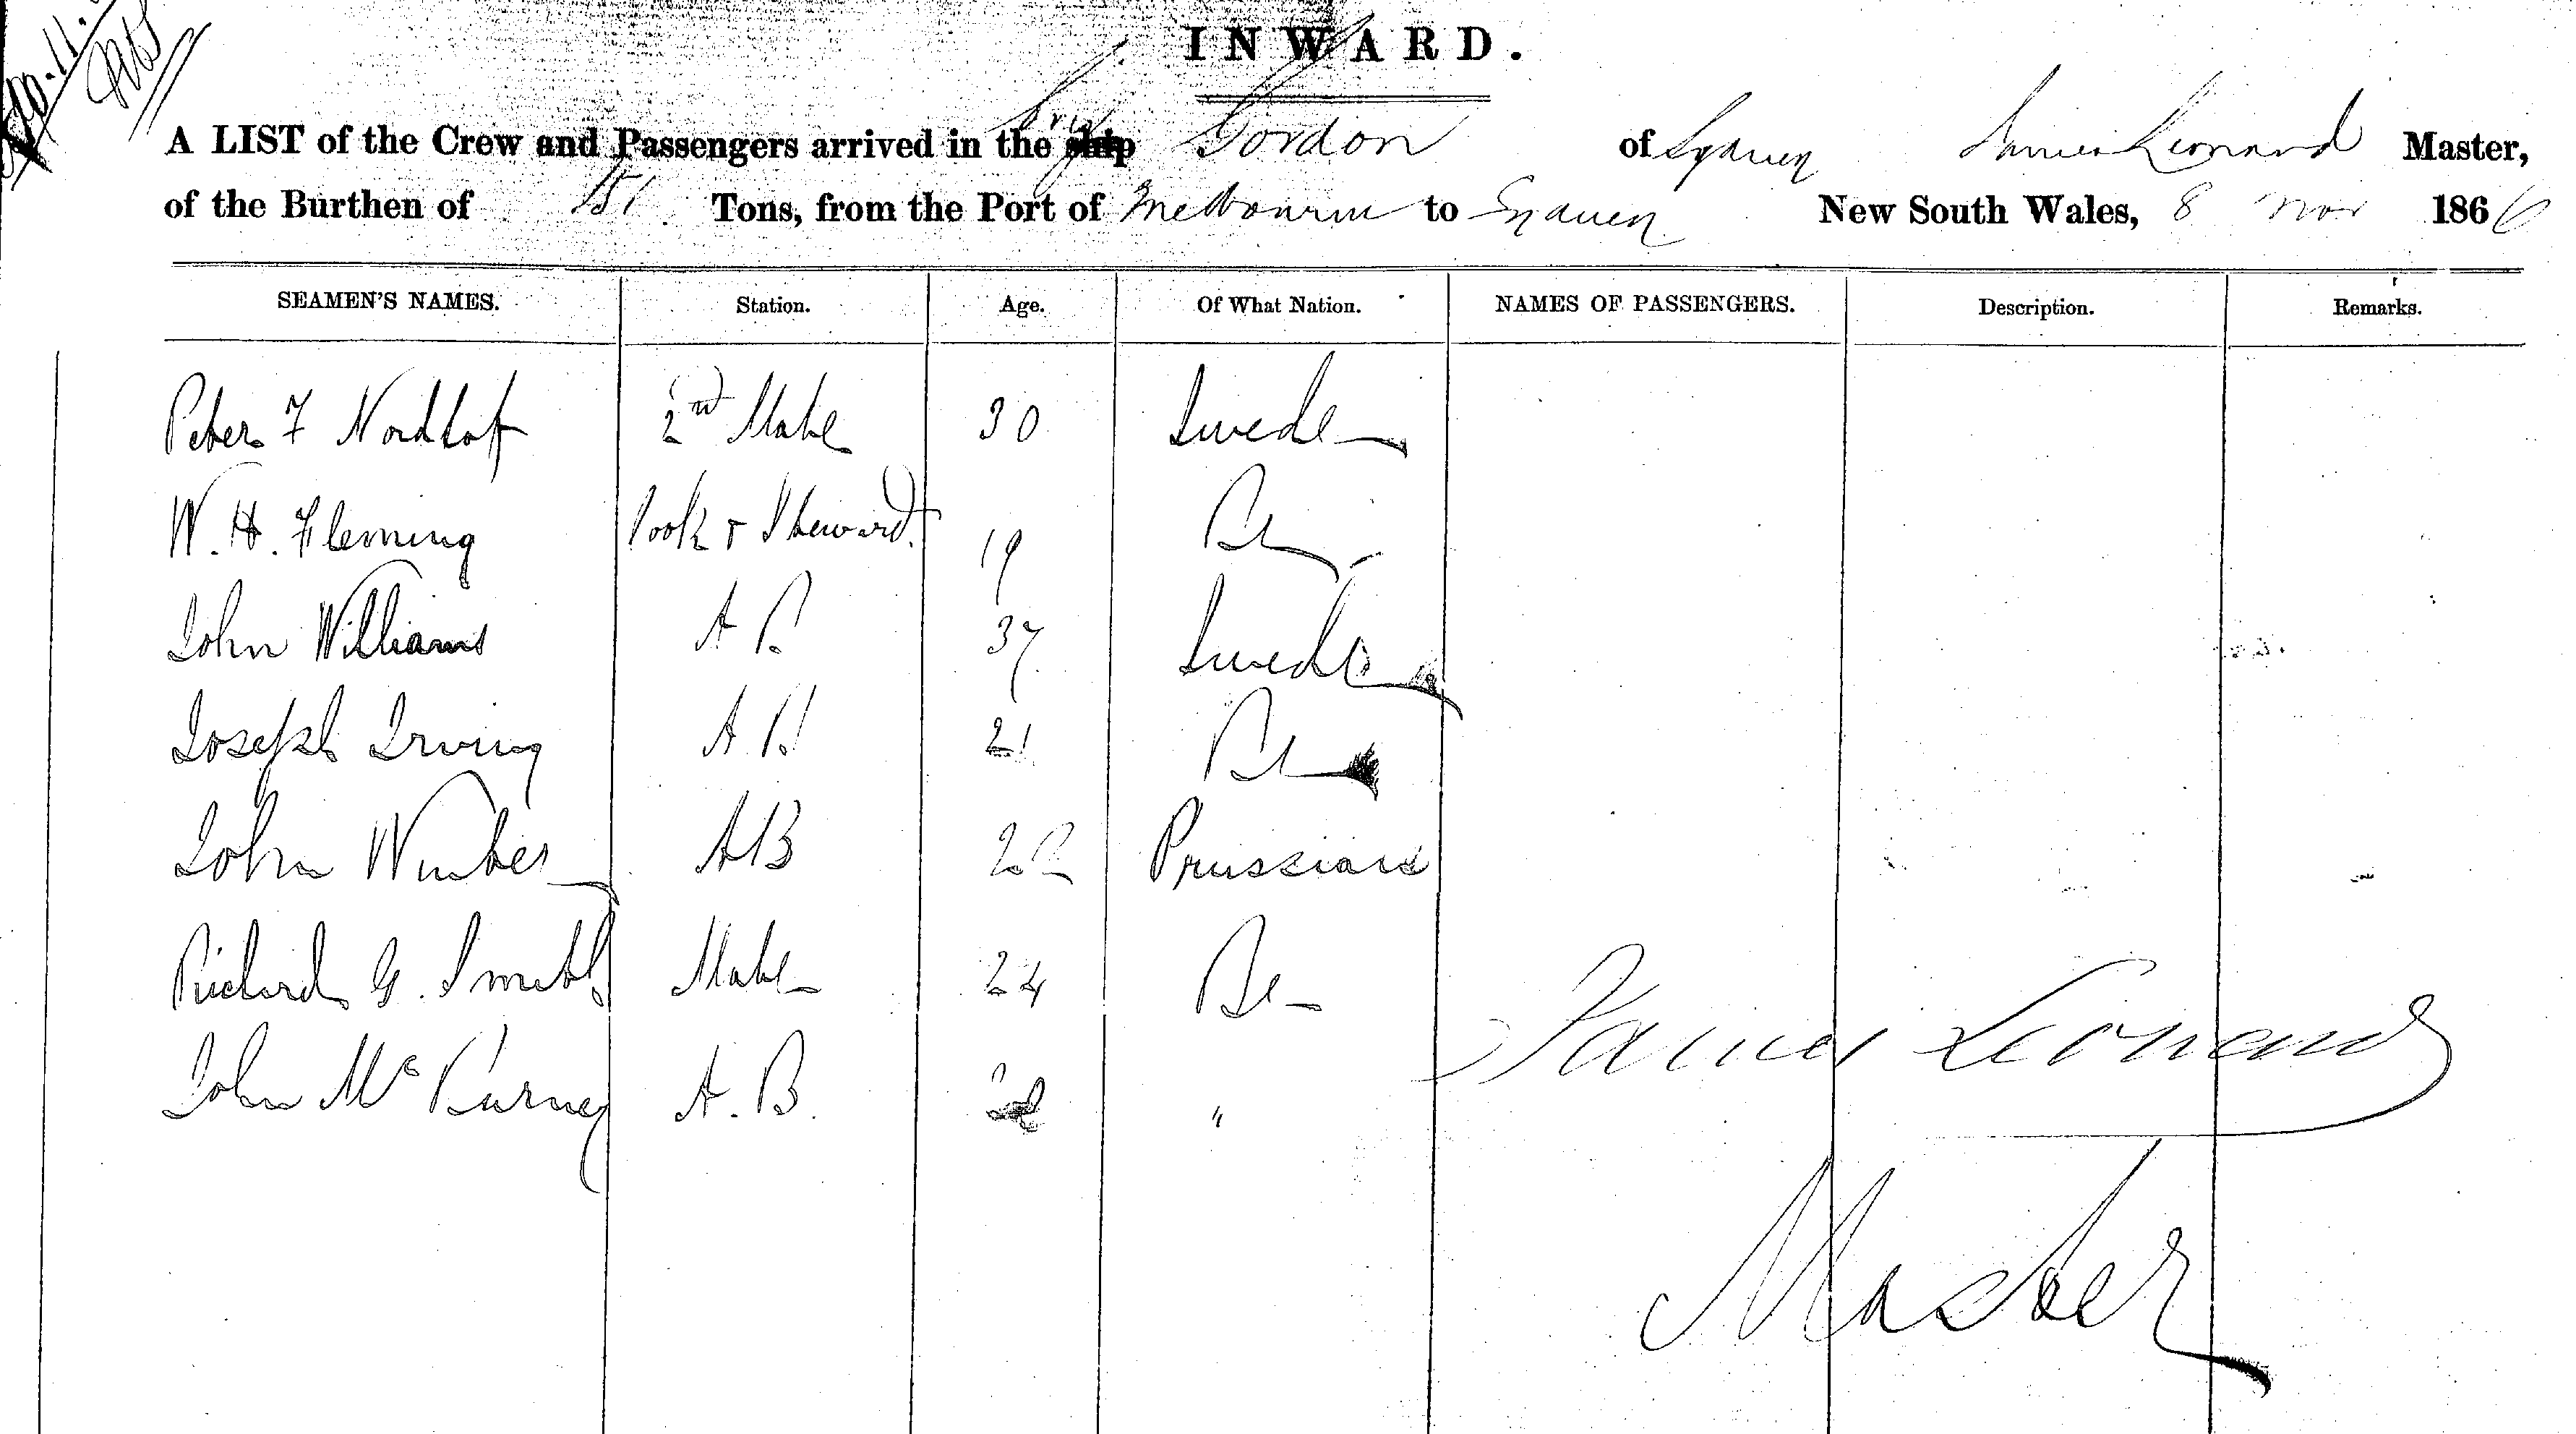 INWARD.
A LIST of the Crew and Passengers arrived in the ship Brig Gordon of Sydney James Leonard Master,
of the Burthen of 151 Tons, from the Port of Melbourne to Sydney New South Wales, 8 Nov 1866
SEAMEN'S NAMES. Station. Age. Of What Nation. NAMES OF PASSENGERS. Description. Remarks.
Peter F Nordhof 2nd Mate 30 Swede
W. H. Fleming Cook & Steward 19 Br
John Williams A B 37 Swede
Joseph Irving A B 21 Br
John Winter AB Prussian
Richard G. Smith Mate 24 Br
John Mc Burney A. B. "
James Leonard
Master